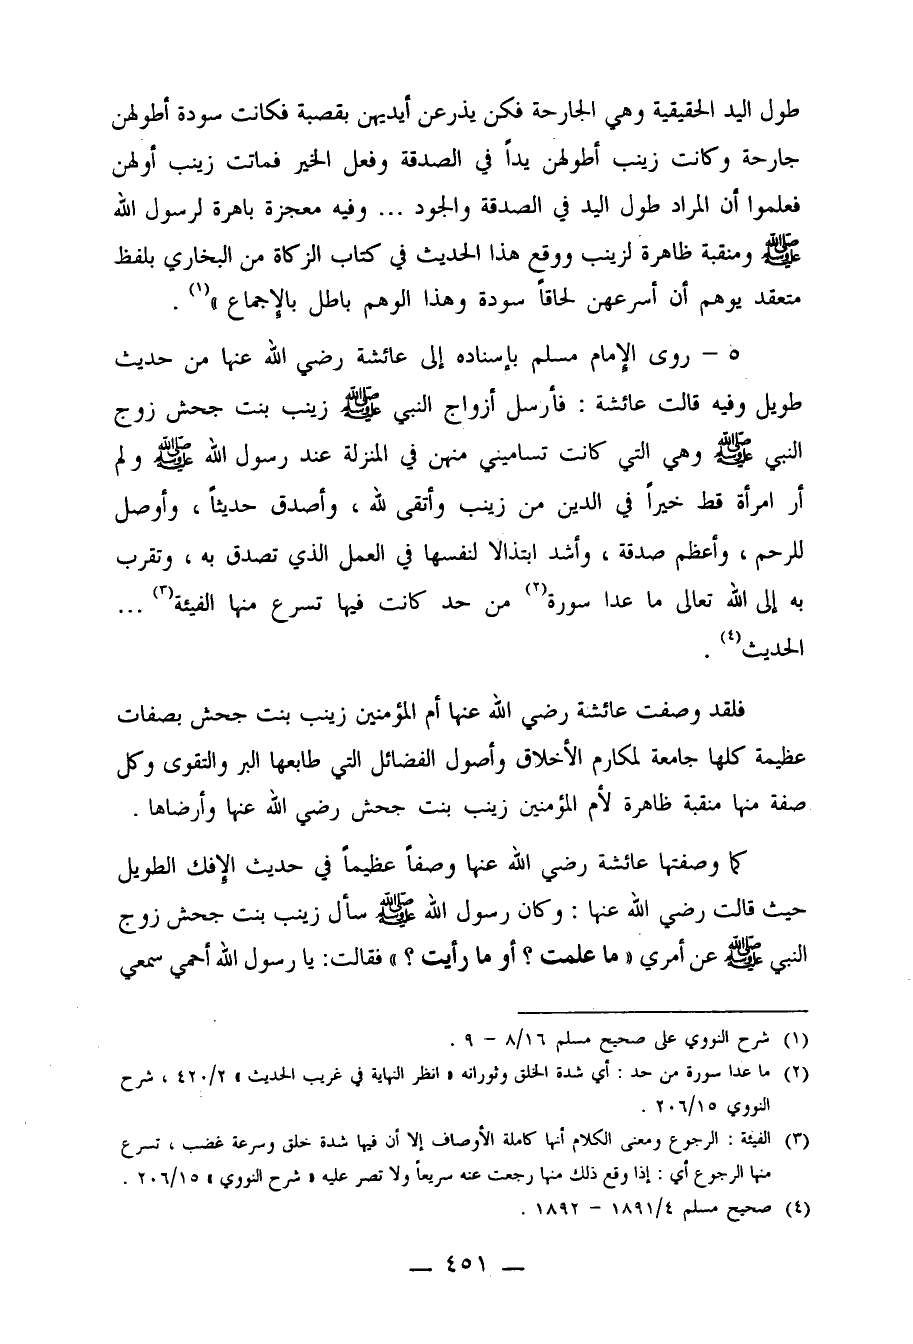 طول اليد الحقيقية وهي الجارحة فكن يذرعن أيديهن بقصبة فكانت سودة أطولهن
جارحة وكانت زينب أطولهن يداً في الصدقة وفعل الخير فماتت زينب أولهن
فعلموا أن المراد طول اليد في الصدقة والجود ... وفيه معجزة باهرة لرسول الله
ﷺ ومنقبة ظاهرة لزينب ووقع هذا الحديث في كتاب الزكاة من البخاري بلفظ
متعقد يوهم أن أسرعهن لحاقاً سودة وهذا الوهم باطل بالإجماع »(١) .
٥ – روى الإمام مسلم بإسناده إلى عائشة رضي الله عنها من حديث
طويل وفيه قالت عائشة : فأرسل أزواج النبي ﷺ زينب بنت جحش زوج
النبي ﷺ وهي التي كانت تساميني منهن في المنزلة عند رسول الله ﷺ ولم
أر امرأة قط خيراً في الدين من زينب وأتقى لله ، وأصدق حديثاً ، وأوصل
للرحم ، وأعظم صدقة ، وأشد ابتذالا لنفسها في العمل الذي تصدق به ، وتقرب
به إلى الله تعالى ما عدا سورة(٢) من حد كانت فيها تسرع منها الفيئة(٣) ...
الحديث(٤) .
فلقد وصفت عائشة رضي الله عنها أم المؤمنين زينب بنت جحش بصفات
عظيمة كلها جامعة لمكارم الأخلاق وأصول الفضائل التي طابعها البر والتقوى وكل
صفة منها منقبة ظاهرة لأم المؤمنين زينب بنت جحش رضي الله عنها وأرضاها .
كما وصفتها عائشة رضي الله عنها وصفاً عظيماً في حديث الإفك الطويل
حيث قالت رضي الله عنها : وكان رسول الله ﷺ سأل زينب بنت جحش زوج
النبي ﷺ عن أمري « ما علمت ؟ أو ما رأيت ؟ » فقالت: يا رسول الله أحمي سمعي
(١) شرح النووي على صحيح مسلم ٨/١٦ – ٩ .
(٢) ما عدا سورة من حد : أي شدة الخلق وثورانه « انظر النهاية في غريب الحديث » ٤٢٠/٢ ، شرح
النووي ٢٠٦/١٥ .
(٣) الفيئة : الرجوع ومعنى الكلام أنها كاملة الأوصاف إلا أن فيها شدة خلق وسرعة غضب ، تسرع
منها الرجوع أي : إذا وقع ذلك منها رجعت عنه سريعاً ولا تصر عليه « شرح النووي » ٢٠٦/١٥ .
(٤) صحيح مسلم ١٨٩١/٤ – ١٨٩٢ .
— ٤٥١ —